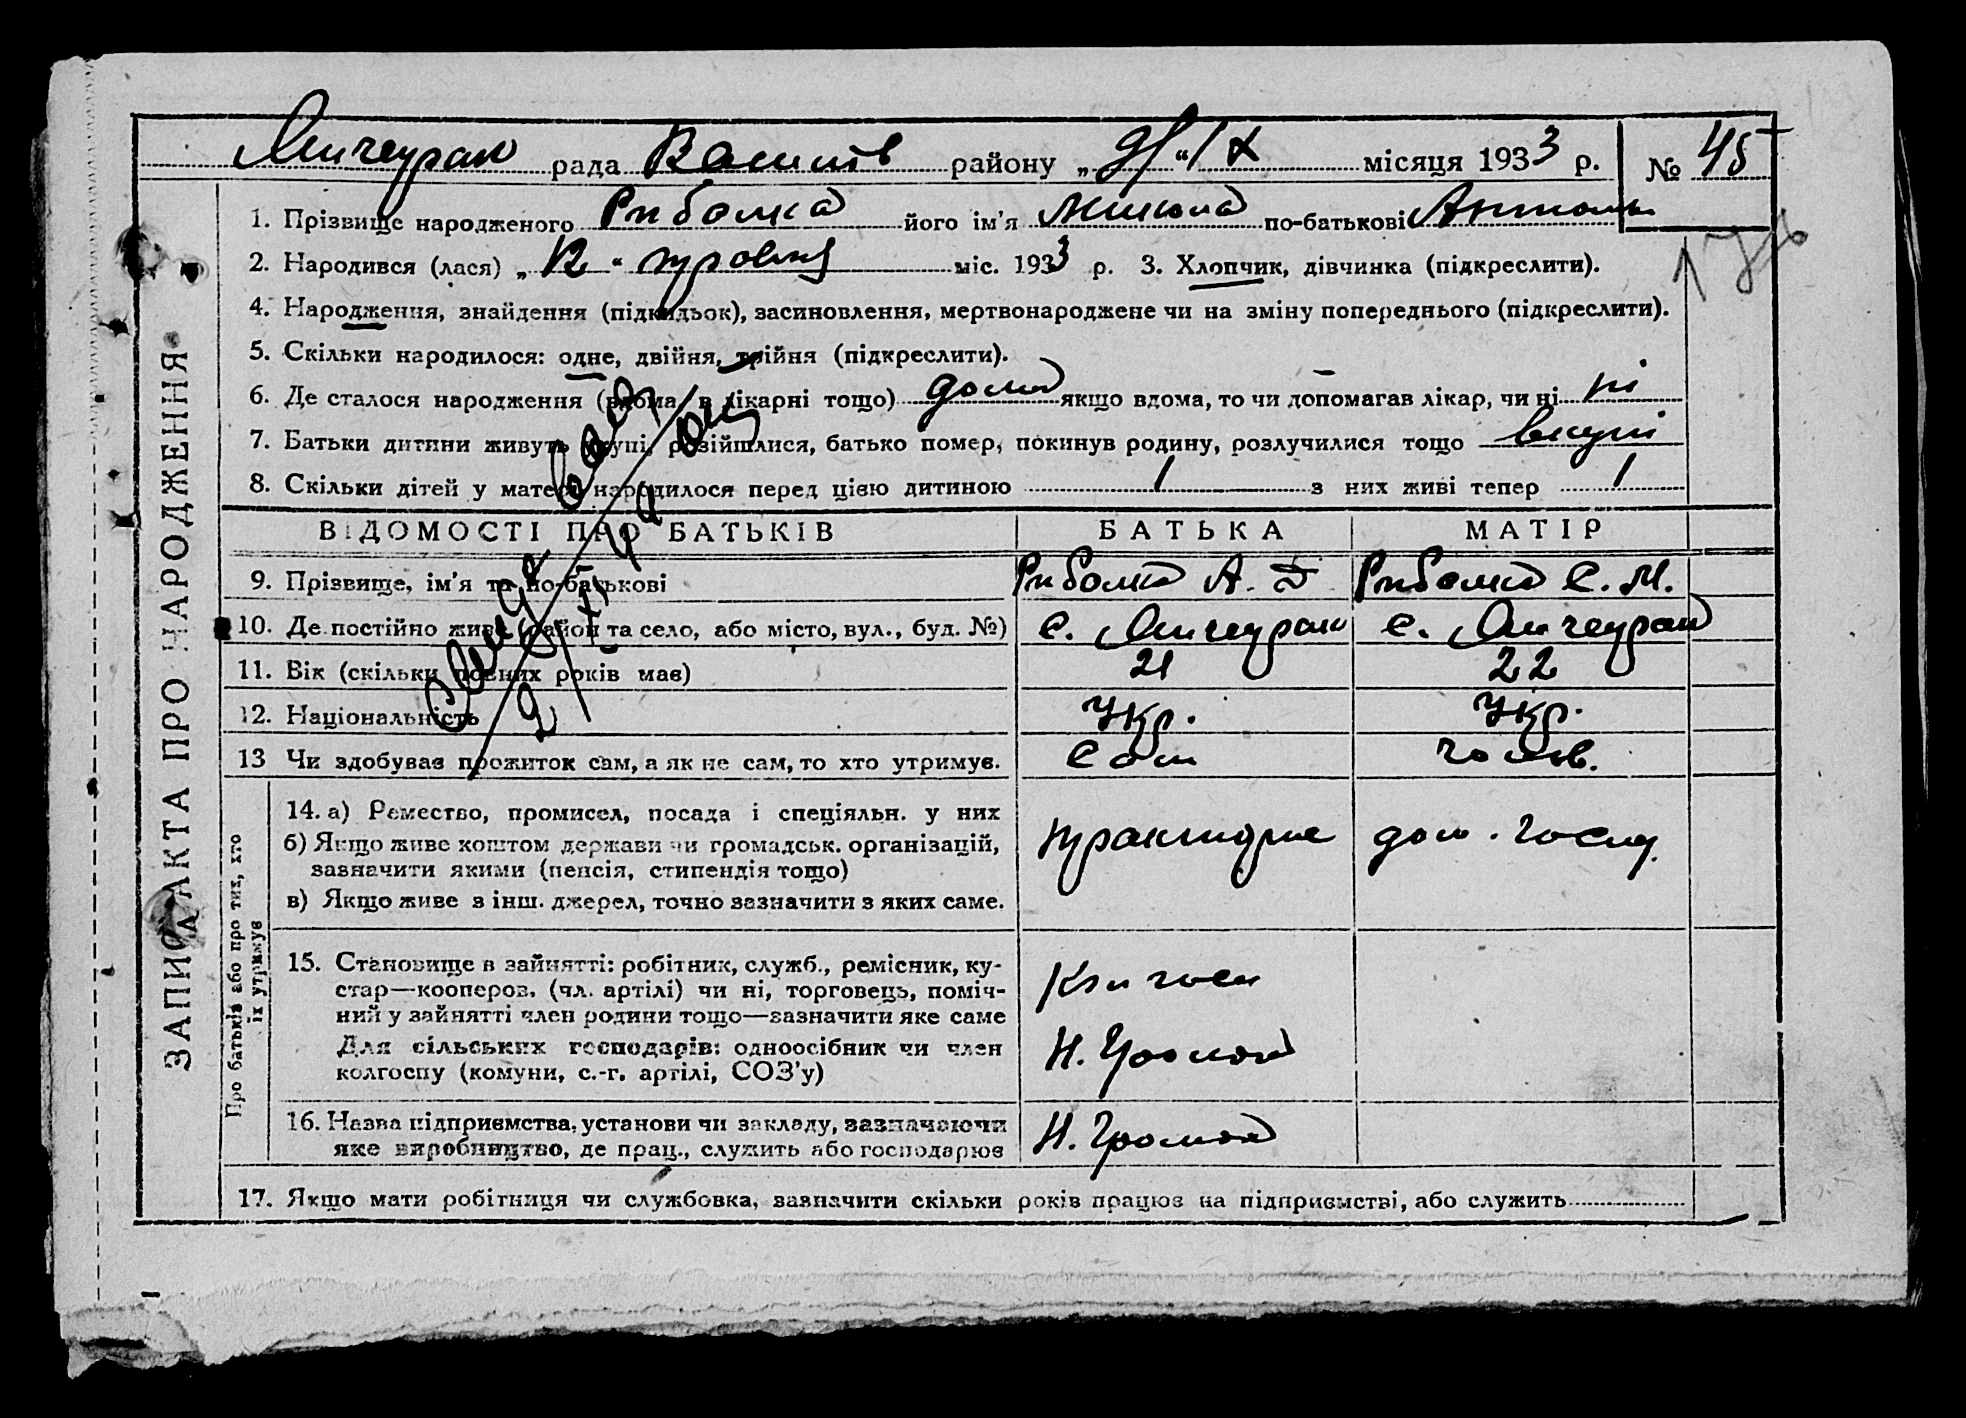 рада Кашпів району „ 21 “ IX місяця 1933 р. № 45
ЗАПИС АКТА ПРО НАРОДЖЕННЯ
1. Прізвище народженого Рибалка його ім'я Микола по-батькові
2. Народився (лася) „ міс. 1933 р. 3. Хлопчик, дівчинка (підкреслити).
4. Народження, знайдення (підкидьок), засиновлення, мертвонароджене чи на зміну попереднього (підкреслити).
5. Скільки народилося: одне, двійня, трійня (підкреслити).
6. Де сталося народження (вдома, в лікарні тощо) дома якщо вдома, то чи допомагав лікар, чи ні ні
7. Батьки дитини живуть вкупі, розійшлися, батько помер, покинув родину, розлучилися тощо вкупі
8. Скільки дітей у матері народилося перед цією дитиною 1 з них живі тепер 1
ВІДОМОСТІ ПРО БАТЬКІВ БАТЬКА МАТІР
9. Прізвище, ім'я та по-батькові Рибалка А. Рибалка Є. М.
10. Де постійно живе (район та село, або місто, вул., буд. №) с. с.
11. Вік (скільки повних років має) 21 22
12. Національність Укр. Укр.
13 Чи здобував прожиток сам, а як не сам, то хто утримує. Сам чолов.
Про батьків або про тих, хто їх утримує
14. а) Ремество, промисел, посада і спеціяльн. у них дом. госпд.
б) Якщо живе коштом держави чи громадськ. організацій,
зазначити якими (пенсія, стипендія тощо)
в) Якщо живе з інш. джерел, точно зазначити з яких саме.
15. Становище в зайнятті: робітник, служб., ремісник, ку-
стар—кооперов. (чл. артілі) чи ні, торговець, поміч-
ний у зайнятті член родини тощо—зазначити яке саме
Для сільських господарів: одноосібник чи член
колгоспу (комуни, с.-г. артілі, СОЗ'у)
16. Назва підприємства, установи чи закладу, зазначаючи
яке виробництво, де прац., служить або господарює
17. Якщо мати робітниця чи службовка, зазначити скільки років працює на підприємстві, або служить